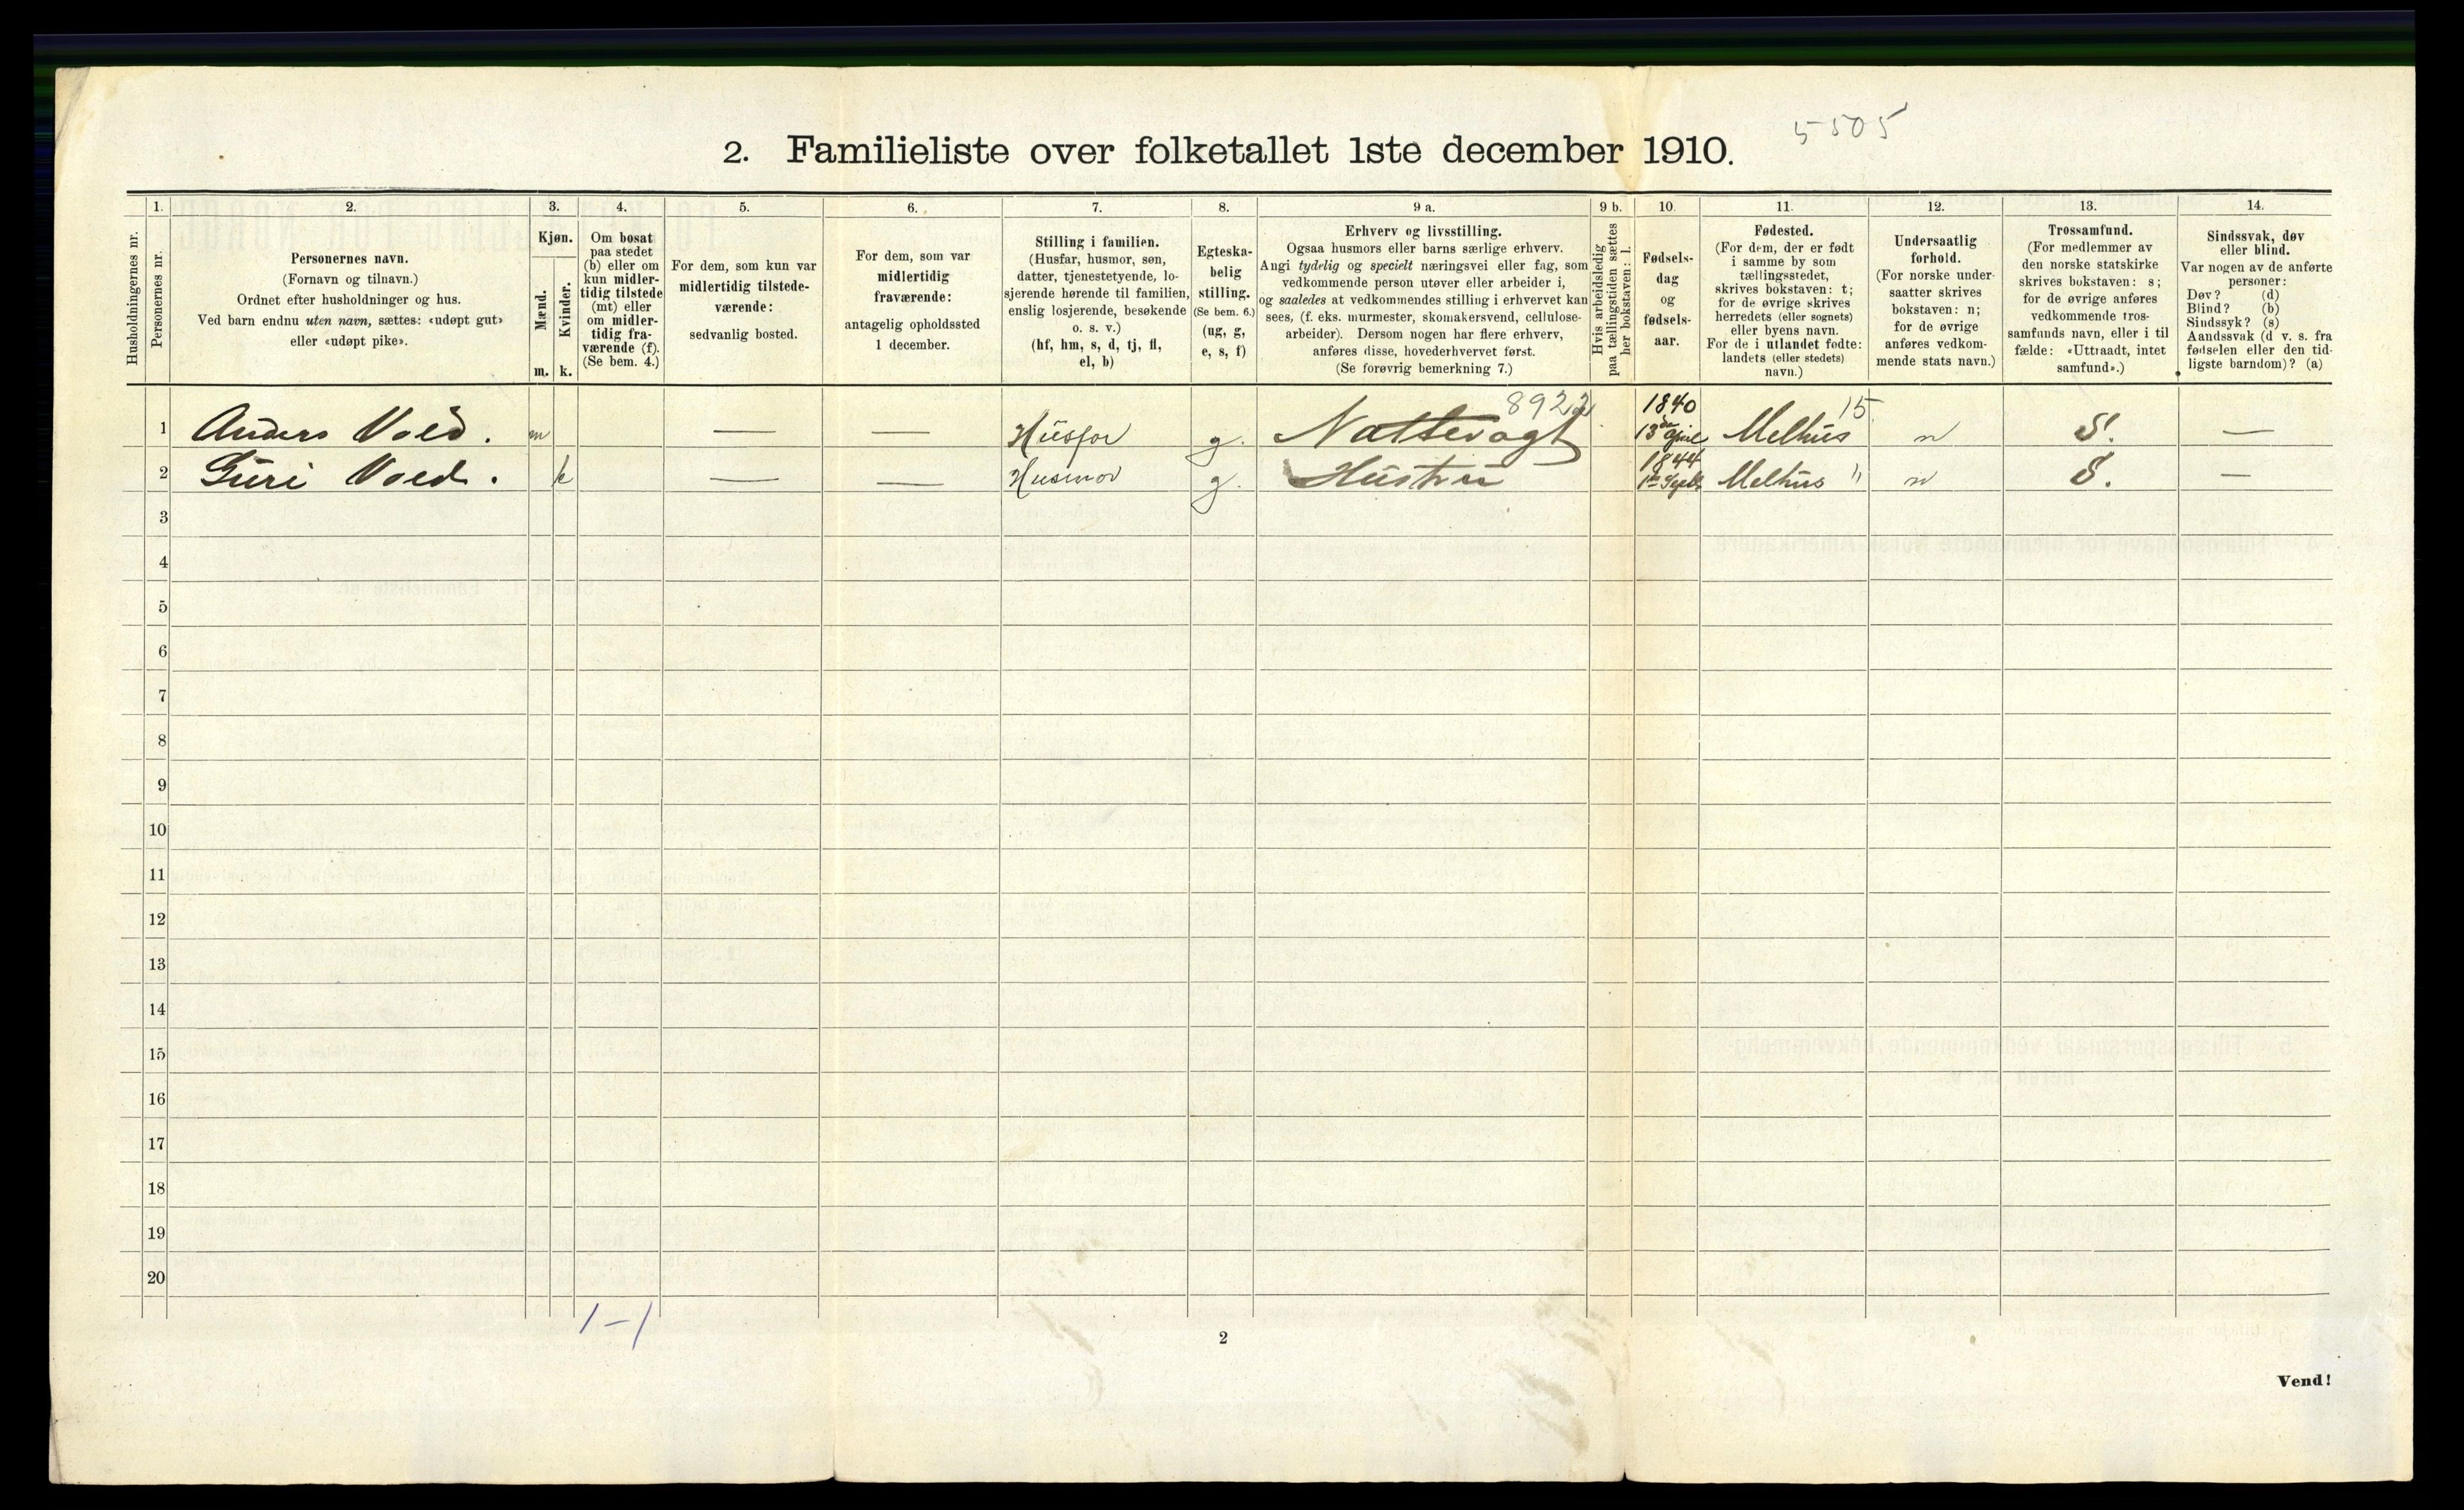 5505
2. Familieliste over folketallet 1ste december 1910.
Husholdningernes nr.
1.
Personernes nr.
2.
Personernes navn.
(Fornavn og tilnavn.)
Ordnet efter husholdninger og hus.
Ved barn endnu uten navn, sættes: «udøpt gut»
eller «udøpt pike».
3.
Kjøn.
Mænd.
Kvinder.
m. k.
4.
Om bosat
paa stedet
(b) eller om
kun midler-
tidig tilstede
(mt) eller
om midler-
tidig fra-
værende (f).
(Se bem. 4.)
5.
For dem, som kun var
midlertidig tilstede-
værende:
sedvanlig bosted.
6.
For dem, som var
midlertidig
fraværende:
antagelig opholdssted
1 december.
7.
Stilling i familien.
(Husfar, husmor, søn,
datter, tjenestetyende, lo-
sjerende hørende til familien,
enslig losjerende, besøkende
o. s. v.)
(hf, hm, s, d, tj, fl,
el, b)
8.
Egteska-
belig
stilling.
(Se bem. 6.)
(ug, g,
e, s, f)
9 a.
Erhverv og livsstilling.
Ogsaa husmors eller barns særlige erhverv.
Angi tydelig og specielt næringsvei eller fag, som
vedkommende person utøver eller arbeider i,
og saaledes at vedkommendes stilling i erhvervet kan
sees, (f. eks. murmester, skomakersvend, cellulose-
arbeider). Dersom nogen har flere erhverv,
anføres disse, hovederhvervet først.
(Se forøvrig bemerkning 7.)
9 b.
Hvis arbeidsledig
paa tællingstiden sættes
her bokstaven: l.
10.
Fødsels-
dag
og
fødsels-
aar.
11.
Fødested.
(For dem, der er født
i samme by som
tællingsstedet,
skrives bokstaven: t;
for de øvrige skrives
herredets (eller sognets)
eller byens navn.
For de i utlandet fødte:
landets (eller stedets)
navn.)
12.
Undersaatlig
forhold.
(For norske under-
saatter skrives
bokstaven: n;
for de øvrige
anføres vedkom-
mende stats navn.)
13.
Trossamfund.
(For medlemmer av
den norske statskirke
skrives bokstaven: s;
for de øvrige anføres
vedkommende tros-
samfunds navn, eller i til-
fælde: «Uttraadt, intet
samfund».)
14.
Sindssvak, døv
eller blind.
Var nogen av de anførte
personer:
Døv? (d)
Blind? (b)
Sindssyk? (s)
Aandssvak (d v. s. fra
fødselen eller den tid-
ligste barndom)? (a)
8922 1840 15
1 Anders Vold. m — — Husfar g. Nattevagt 13de April Melhus n S. —
1844
2 Guri Vold. k — — Husmor g. Hustru 1te Septb Melhus " n S. —
3
4
5
6
7
8
9
10
11
12
13
14
15
16
17
18
19
20
1-1
2
Vend!